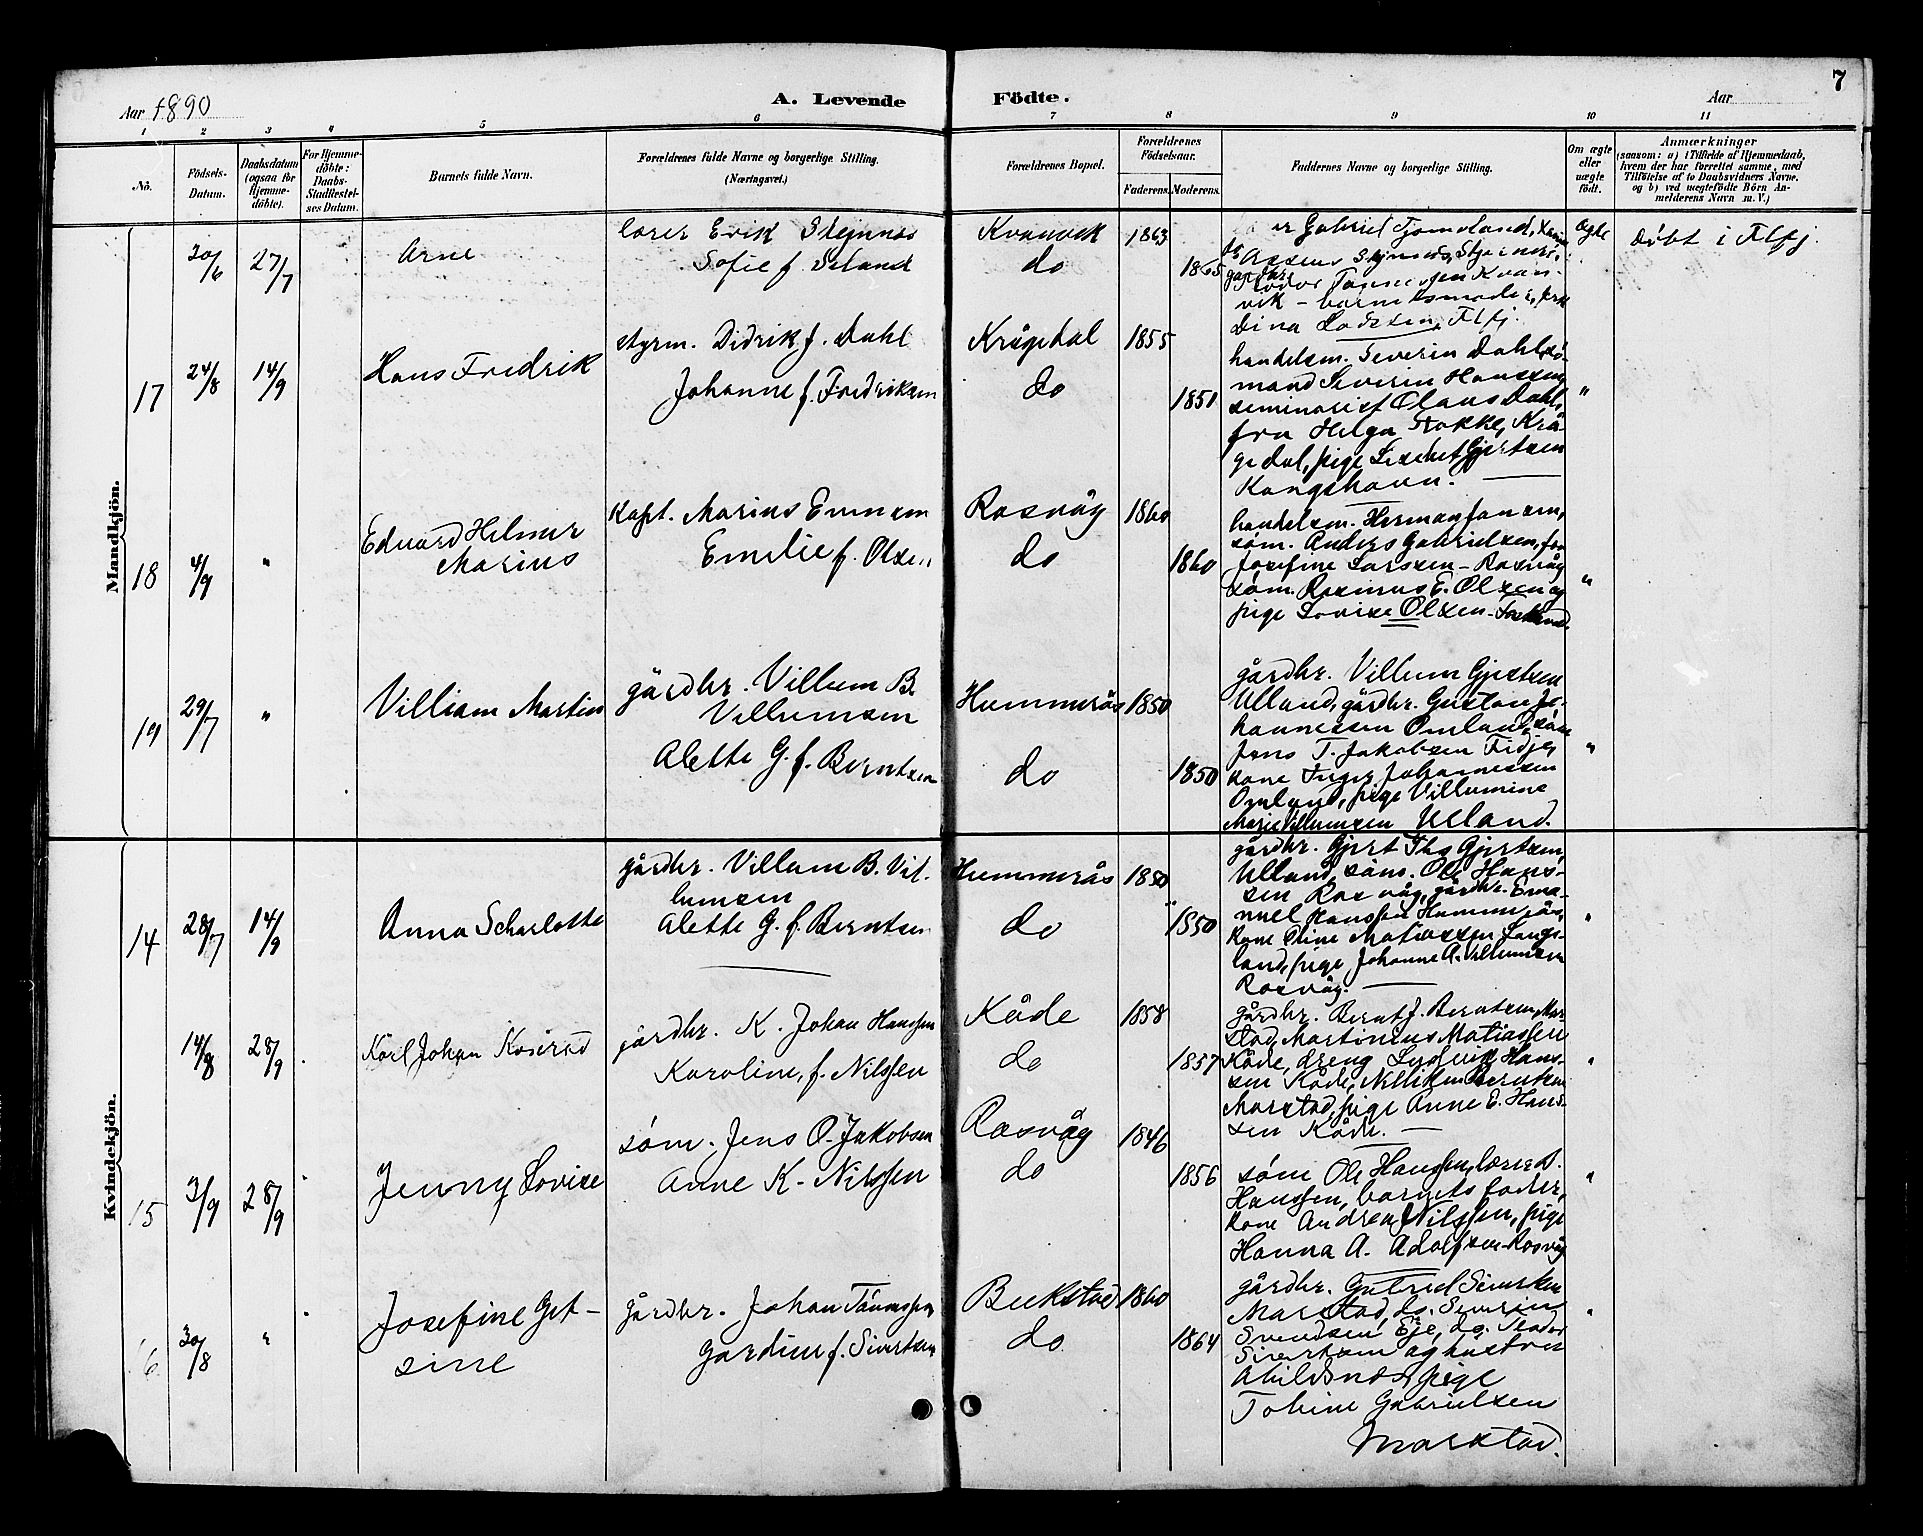 7
Aar 1890
A. Levende
Födte.
Aar
1 2 3 4 5 6 7 8 9 10 11
No.
Födsels-Datum.
Daabsdatum (ogsaa for Hjemme-döbte).
For Hjemme-döbte: Daabs-Stadfæstel-ses Datum.
Barnets fulde Navn.
Forældrenes fulde Navne og borgerlige Stilling.
(Næringsvei.)
Forældrenes Bopæl.
Forældrenes Födselsaar.
Faderens. Moderens.
Faddernes Navne og borgerlige Stilling.
Om ægte eller uægte födt.
Anmærkninger
(saasom: a) i Tilfælde af Hjemmedaab, hvem der har forrettet samme, med Tilföielse af to Daabsvidners Navne. og b) ved uegtefödte Börn An-melderens Navn m. V.)
Mandkjön.
30/6 27/7 Arne
lærer Erik Stejnnes
Sofie f. Seland
Kvanvik
do
1863
1865
Gabriel Tjomsland,
barnets moder,
Dina Lodesen, Flfj.
Ægte
Döbt i Flfj.
17 24/8 14/9 Hans Fredrik
styrm. Didrik J. Dahl
Johanne f. Fredriksen
Krågedal
do
1855
1851
handelsm. Severin Dahl, sö-
mand Severin Hanssen,
seminarist Olaus Dahl,
fru Helga Stokke, Krå-
gedal, pige Lisebet Gjertsen
Kongshavn.
"
18 4/9 " Eduard Helmer
Marius
Kapt. Marius Emansen
Emelie f. Olsen
Rasvåg
do
1860
1860
handelsm. Herman Jansen,
söm. Anders Gabrielsen, fru
Josefine Larssen - Rasvåg
söm. Rasmus E. Olsen og
pige Lovise Olsen -
"
19 29/7 " Villiam Martin
gårdbr. Villum B.
Villumsen
Alette G. f. Berntsen
Hummerås
do
1850
1850
gårdbr. Villum Gjertsen
Ulland, gårdbr. Gustav Jo-
hannessen Omland, söm
Jens T. Jakobsen Fidje,
kone Inger Johannessen
Omland, pige Villumine
Marie Villumsen Ulland.
"
Kvindekjön.
14 28/7 14/9 Anna Scharlotte
gårdbr. Villum B. Vil-
lumsen
Alette G. f. Berntsen
Hummerås
do
1850
1850
gårdbr. Gjert Ths Gjertsen,
Ulland, söm. Ole Hans-
sen Rasvåg, gårdbr. Ema-
nuel Hanssen Hummerås,
kone Oline Matiassen Lange-
land, pige Johanne A. Villumsen
Rasvåg.
"
14/8 28/9 Karl Johan
gårdbr. K. Johan Hanssen
Karoline, f. Nilssen
Kåde
do
1858
1857
gårdbr. Bernt J. Berntsen, Mar-
stad, Martinius Matiassen
Kåde, dreng Hans-
sen Kåde, Berntsen
Marstad, pige Anne E. Hans-
sen Kåde.
"
15 3/9 28/9 Jenny Lovise
söm. Jens O. Jakobsen
Anne K. Nilssen
Rasvåg
do
1846
1856
söm Ole Hanssen, lærer B.
Hanssen, barnets fader,
kone Andrea Nilssen, pige
Hanna A. Adolfsen - Rasvåg
"
16 30/8 " Josefine Get-
sine
gårdbr. Johan Tånnessen
Gardine f. Sivertsen
Bukstad
do
1860
1864
gårdbr. Sivertsen
Marstad, do. Severin
Svendsen Eje, do. Teodor
Sivertsen og hustru
Abildsnes, pige
Tobine Gabrielsen
Marstad.
"